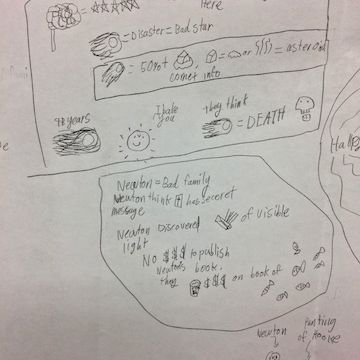 Here
= Disaster = Bad star
= 50pt
= or = asteroid
comet info
I hate
you
They think
= DEATH
years
Hall
Newton = Bad family
Newton think has secret
message
Newton Discovered of visible
light
No $$$ to publish
Newton's book,
they $$$ on book of
Newton
Panting
of Hooke